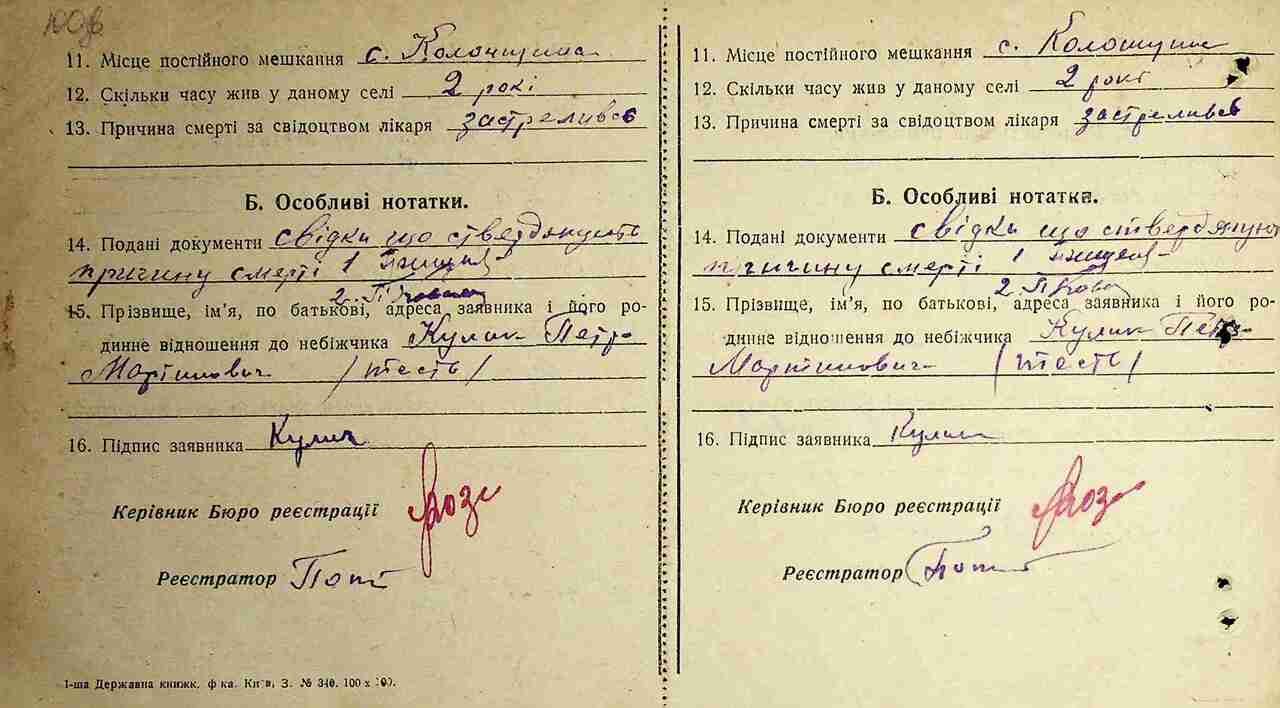 100зв
11. Місце постійного мешкання с. Колонщина
12. Скільки часу жив у даному селі 2 рокі
13. Причина смерті за свідоцтвом лікаря застреливсь
Б. Особливі нотатки.
14. Подані документи свідки що стверджують
причину смерті 1
2.
15. Прізвище, ім'я, по батькові, адреса заявника і його ро-
динне відношення до небіжчика Кулик Петро
Мартинович /тесть/
16. Підпис заявника Кулик
Керівник Бюро реєстрації
Реєстратор
1-ша Державна книжк. ф-ка. Київ, З. № 340. 100 х 100.
11. Місце постійного мешкання с. Колонщина
12. Скільки часу жив у даному селі 2 рокі
13. Причина смерті за свідоцтвом лікаря застреливсь
Б. Особливі нотатки.
14. Подані документи свідки що стверджують
причину смерті 1
2.
15. Прізвище, ім'я, по батькові, адреса заявника і його ро-
динне відношення до небіжчика Кулик Петро
Мартинович /тесть/
16. Підпис заявника Кулик
Керівник Бюро реєстрації
Реєстратор